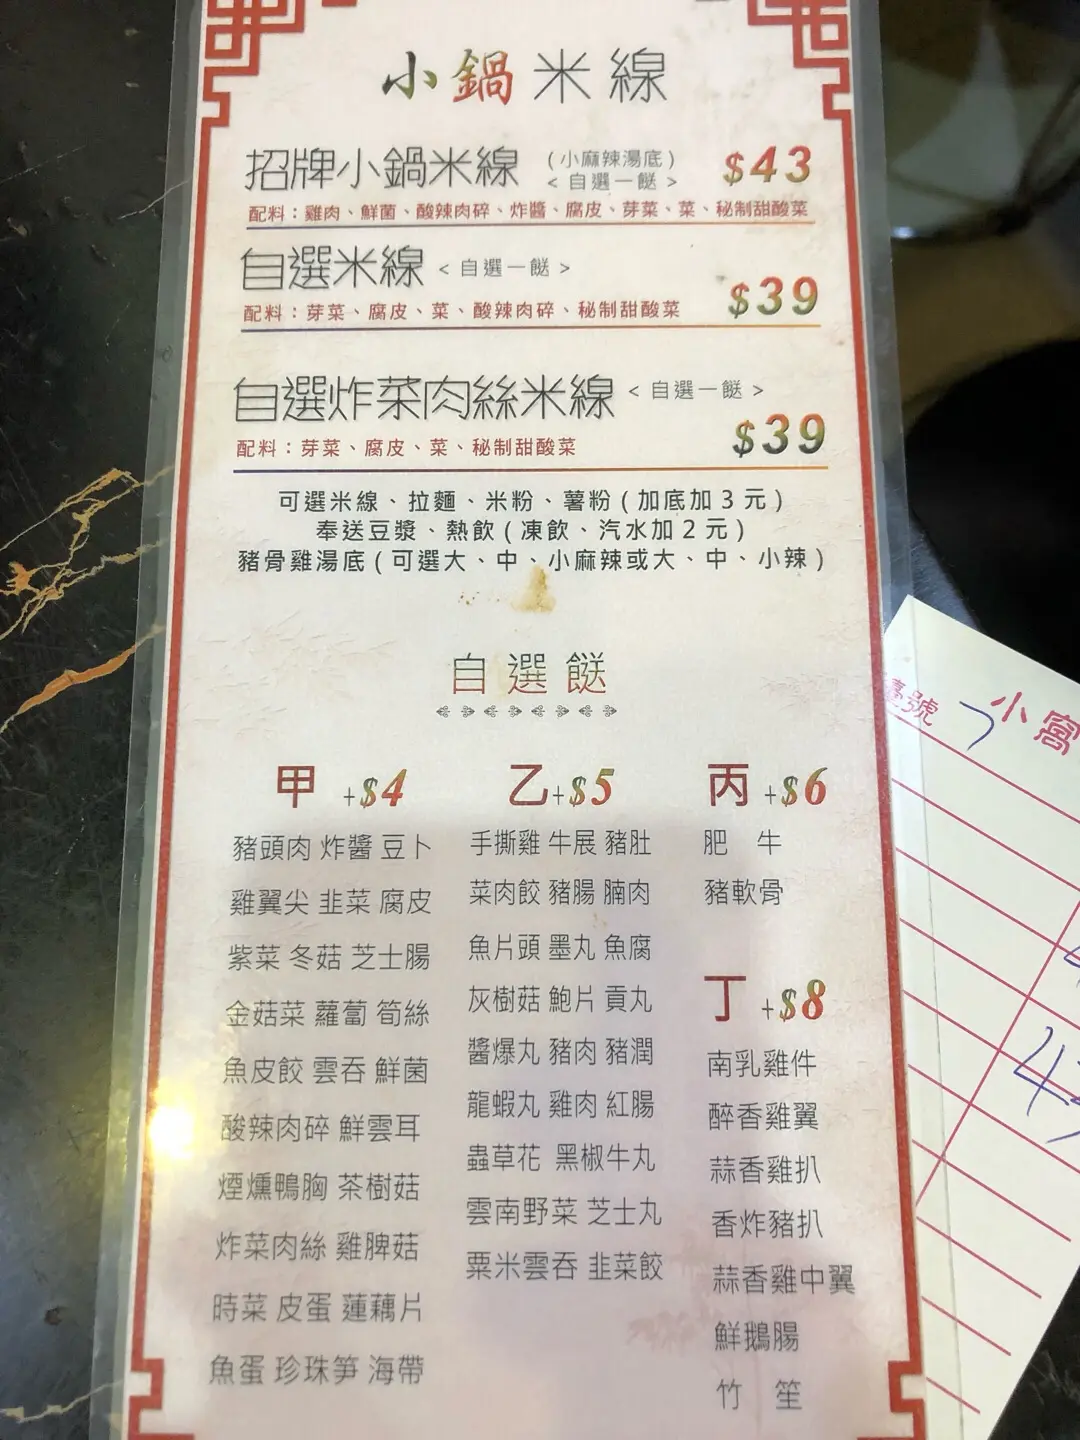 小鍋米線
招牌小鍋米線 (小麻辣湯底) $43
<自選一餸>
配料：雞肉、鮮菌、酸辣肉碎、炸醬、腐皮、芽菜、菜、秘制甜酸菜
自選米線 <自選一餸>
$39
配料：芽菜、腐皮、菜、酸辣肉碎、秘制甜酸菜
自選炸菜肉絲米線 <自選一餸>
$39
配料：芽菜、腐皮、菜、秘制甜酸菜
可選米線、拉麵、米粉、薯粉(加底加3元)
奉送豆漿、熱飲(凍飲、汽水加2元)
豬骨雞湯底(可選大、中、小麻辣或大、中、小辣)
自選餸
甲 +$4
豬頭肉 炸醬 豆卜
雞翼尖 韭菜 腐皮
紫菜 冬菇 芝士腸
金菇菜 蘿蔔 筍絲
魚皮餃 雲吞 鮮菌
酸辣肉碎 鮮雲耳
煙燻鴨胸 茶樹菇
炸菜肉絲 雞髀菇
時菜 皮蛋 蓮藕片
魚蛋 珍珠笋 海帶
乙+$5
手撕雞 牛展 豬肚
菜肉餃 豬腸 腩肉
魚片頭 墨丸 魚腐
灰樹菇 鮑片 貢丸
醬爆丸 豬肉 豬潤
龍蝦丸 雞肉 紅腸
蟲草花 黑椒牛丸
雲南野菜 芝士丸
粟米雲吞 韭菜餃
丙 +$6
肥 牛
豬軟骨
丁 +$8
南乳雞件
醉香雞翼
蒜香雞扒
香炸豬扒
蒜香雞中翼
鮮鵝腸
竹 笙
號 7
小窩